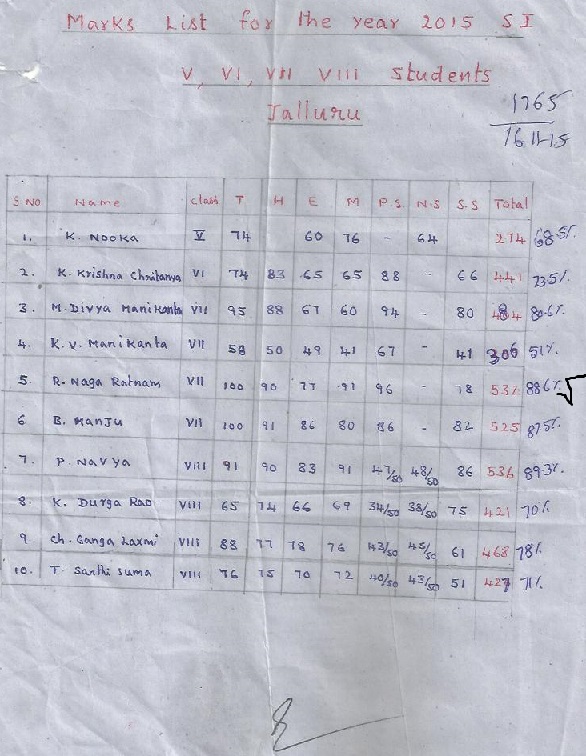 Marks List for the year 2015 SI
V, VI, VII VIII students
Jalluru
1265
S.NO Name class T H E M P.S N.S S.S Total
1. K. Nooka V 74 60 76 - 64 274 68.5%
2. K. Krishna Chaitanya VI 74 83 65 65 88 - 66 441 73.5%
3. M. Divya Manikanta VII 95 88 67 60 94 - 80 484 80.6%
4. K.V. Manikanta VII 58 50 49 41 67 - 41 306 51%
5. R. Naga Ratnam VII 100 90 77 91 96 - 78 532 88.6%
6 B. Manju VII 100 91 86 80 86 - 82 525 87.5%
7. P. Navya VIII 91 90 83 91 47/50 48/50 86 536 89.3%
8. K. Durga Rao VIII 65 74 66 69 34/50 38/50 75 421 70%
9 Ch. Ganga Laxmi VIII 88 77 78 76 43/50 45/50 61 468 78%
10. T. Santhi Suma VIII 76 75 70 72 40/50 43/50 51 427 71%